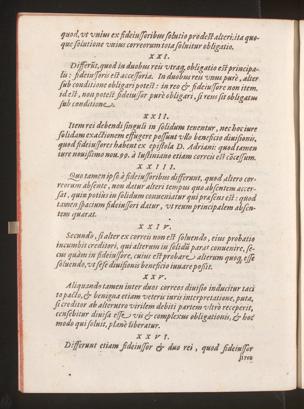 quod, vt vnius ex fideiussoribus solutio prodest alteri: ita quo-
que solutione vnius correorum tota soluitur obligatio.
XXI.
Differūt, quod in duobus reis vtraq; obligatio est principa-
lis: fideiussoris est accessoria. In duobus reis vnus purè, alter
sub conditione obligari potest: in reo & fideiussore non item.
id est, non potest fideiussor purè obligari, si reus sit obligatus
sub conditione.
XXII.
Item rei debendi singuli in solidum tenentur, nec hoc iure
solidam exactionem effugere possunt vllo beneficio diuisionis,
quod fideiussores habent ex epistola D. Adriani: quod tamen
iure nouissimo nou. 99. à Iustiniano etiam correis est cōcessum.
XXIII.
Quo tamen ipso à fideiussoribus differunt, quod altero cor-
reorum absente, non datur alteri tempus quo absentem accer-
sat, quin potius in solidum conueniatur qui præsens est: quod
tamen spacium fideiussori datur, vt reum principalem absen-
tem quærat.
XXIV.
Secundo, si alter ex correis non est soluendo, eius probatio
incumbit creditori, qui alterum in solidū parat conuenire, se-
cus quàm in fideiussore, cuius est probare alterum quoq; esse
soluendo, vt sese diuisionis beneficio iuuare possit.
XXV.
Aliquando tamen inter duos correos diuisio inducitur taci-
to pacto, & benigna etiam veteris iuris interpretatione, puta,
si creditor ab alterutro virilem debiti partem vltrò receperit,
censebitur diuisa esse vis & complexus obligationis, & hoc
modo qui soluit, planè liberatur.
XXVI.
Differunt etiam fideiussor & duo rei, quod fideiussor